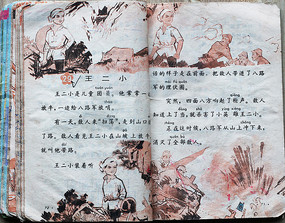 王二小
王二小是儿童团员。他常常一
放牛,一边给八路军放哨。
有一天,敌人来"扫荡",走到山口
了路。敌人看见王二小在山坡上
就叫他带路。
王二小装着听
话的样子走在前面,把敌人带进了八路
军的埋伏圈。
突然,四面八方响起了枪声。敌人
知道上了当,就杀害了小英雄王二小。
正在这时候,八路军从山上冲下来,
消灭了全部敌人。